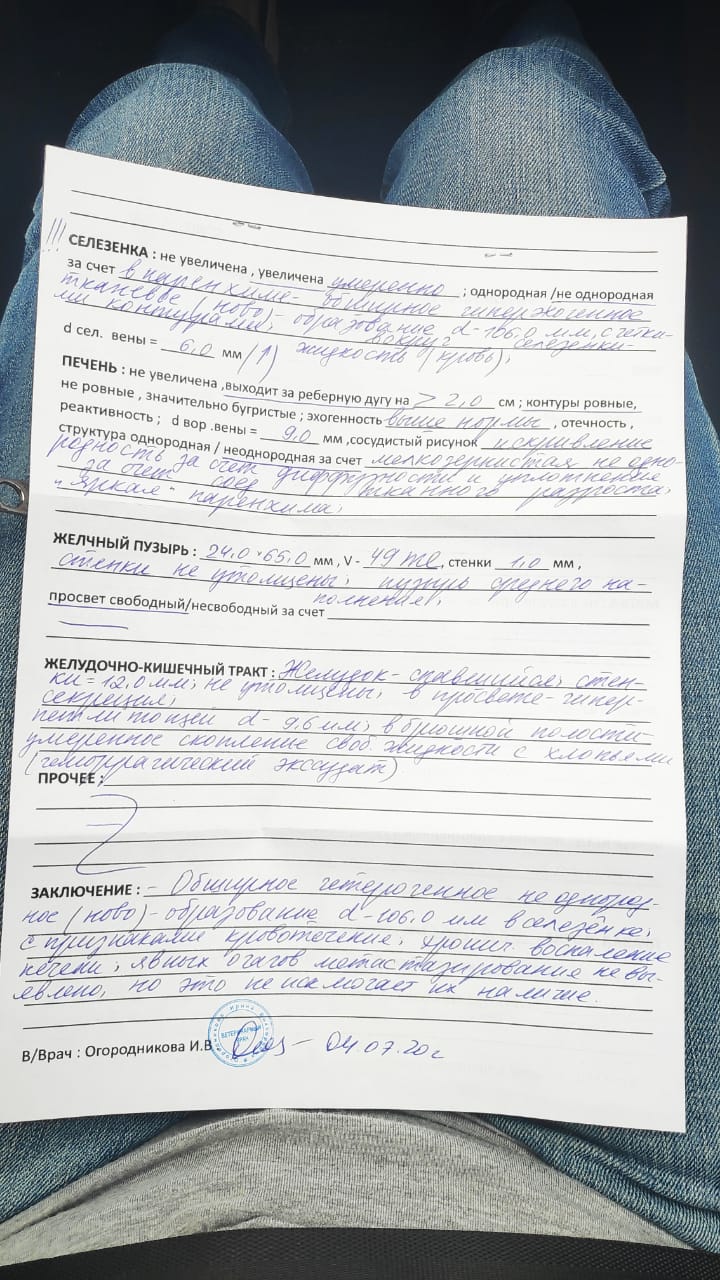 !!! СЕЛЕЗЕНКА : не увеличена , увеличена умеренно ; однородная /не однородная
за счет в паренхиме- обширное гиперэхогенное
тканевое (ново)- образование d-106,0 мм, с четки-
ми контурами, вокруг селезенки-
d сел. вены = 6,0 мм (↑) жидкость (кровь),
ПЕЧЕНЬ : не увеличена ,выходит за реберную дугу на > 2,0 см ; контуры ровные,
не ровные , значительно бугристые ; эхогенность выше нормы , отечность ,
реактивность ; d вор .вены = 9,0 мм ,сосудистый рисунок искривление
структура однородная / неоднородная за счет мелкозернистая, не одно-
родность за счет диффузности и уплотнения
за счет соед. тканного разроста,
"яркая" паренхима,
ЖЕЛЧНЫЙ ПУЗЫРЬ : 24,0 × 65,0 мм , V - 49 ml , стенки 1,0 мм ,
стенки не утолщены, пузырь среднего на-
полнения,
просвет свободный/несвободный за счет
ЖЕЛУДОЧНО-КИШЕЧНЫЙ ТРАКТ : Желудок- спавшийся, стен-
ки = 12,0 мм, не утолщены, в просвете- гипер-
секреция,
петли тощей d- 9,6 мм, в брюшной полости-
умеренное скопление своб. жидкости с хлопьями
(геморрагический экссудат)
ПРОЧЕЕ :
ЗАКЛЮЧЕНИЕ : - Обширное гетерогенное не однород-
ное (ново)- образование d-106,0 мм в селезёнке,
с признаками кровотечение, хронич. воспаление
печени, явных очагов метастазирования не вы-
явлено, но это не исключает их наличие.
В/Врач : Огородникова И.В 04.07.20г
ВЕТЕРИНАРНЫЙ
ВРАЧ